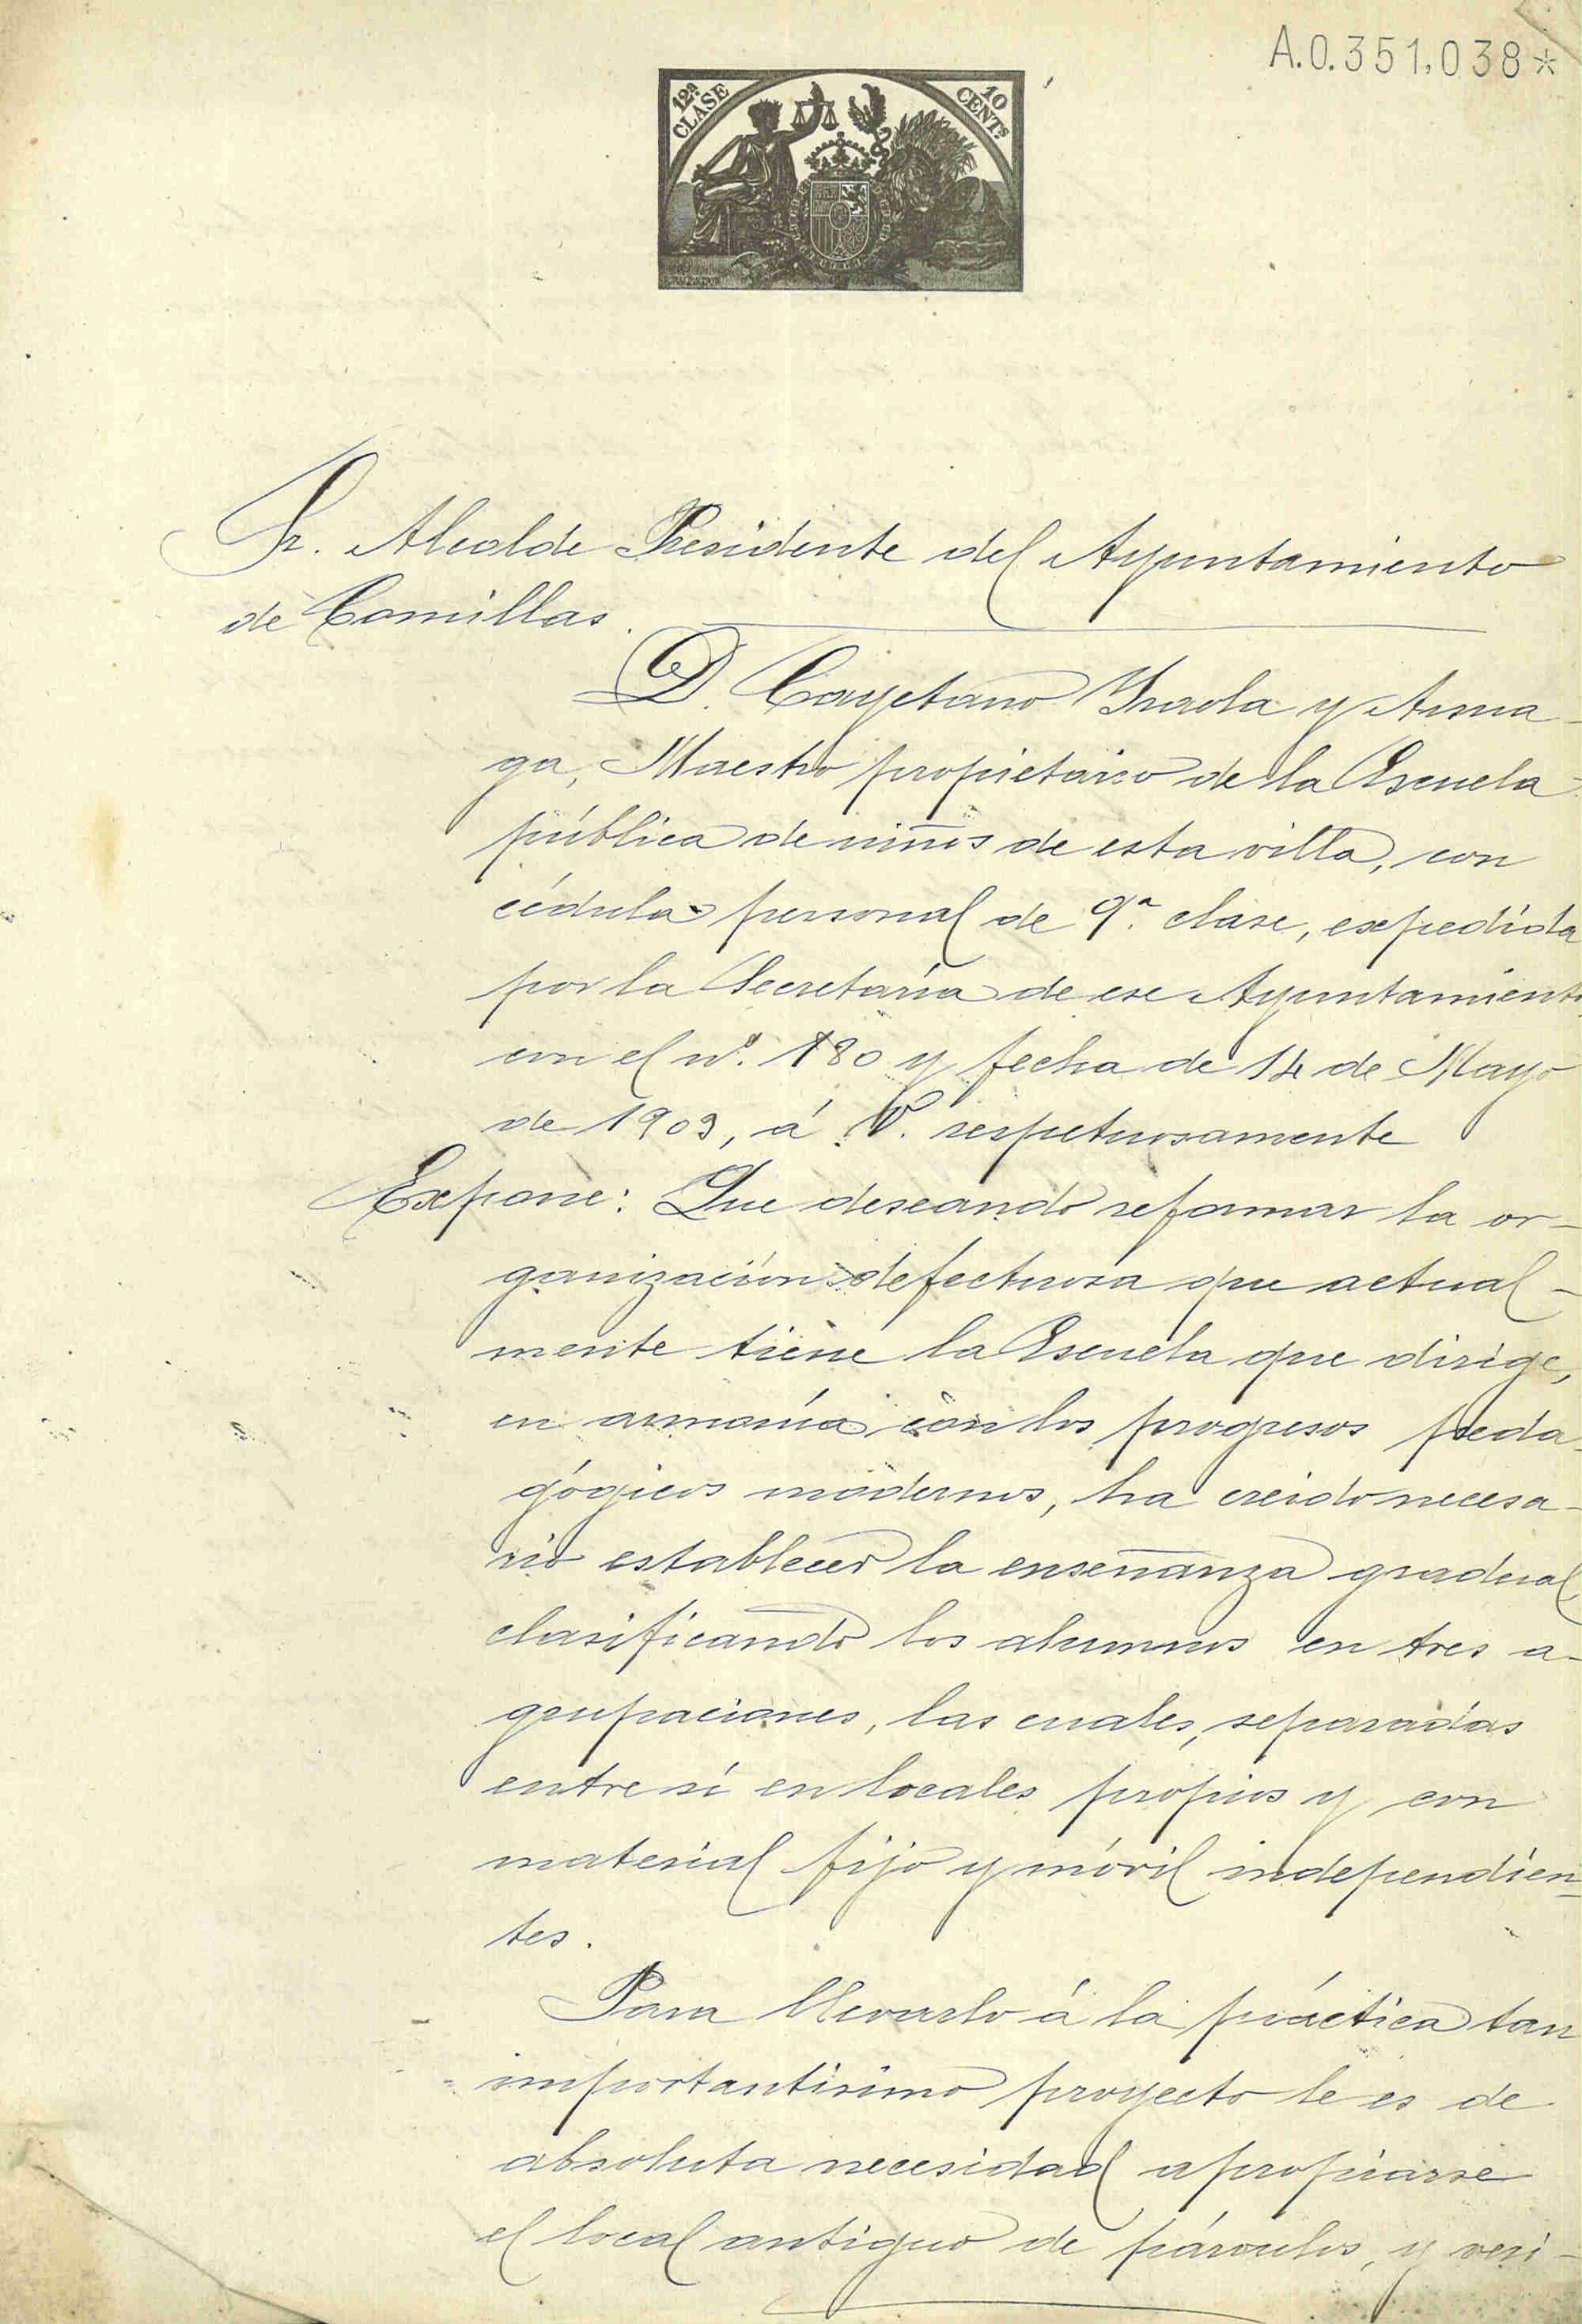 A.0.351,038*
12ª CLASE
10 CENTs
Sr. Alcalde Presidente del Ayuntamiento
de Comillas.
D. Cayetano Yraola y Arma-
ga, Maestro propietario de la Escuela
pública de niños de esta villa, con
cédula personal de 9.ª clase, expedida
por la Secretaría de ese Ayuntamiento
con el nº. 180 y fecha de 14 de Mayo
de 1909, á V. respetuosamente
Expone: Que deseando reformar la or-
ganización defectuosa que actual-
mente tiene la Escuela que dirige,
en armonía con los progresos peda-
gógicos modernos, ha creido necesa-
rio establecer la enseñanza gradual
clasificando los alumnos en tres a-
grupaciones, las cuales, separadas
entre sí en locales propios y con
material fijo y móvil independien=
tes.
Para llevarlo á la práctica tan
importantísimo proyecto le es de
absoluta necesidad apropiarse
el local antiguo de párvulos, y veri-